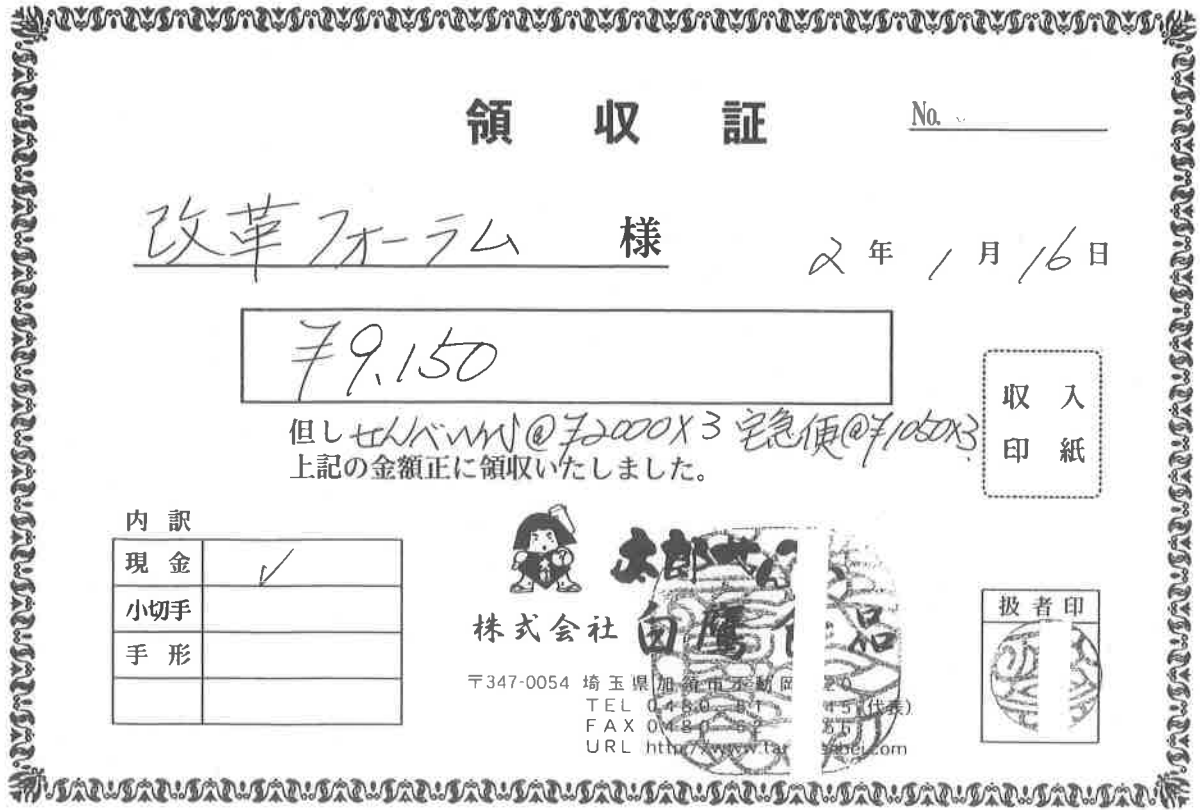 領収証
No.
改革フォーラム 様
2年 1月 16日
¥9,150
但し せんべい @¥2000×3 宅急便@¥1050×3
上記の金額正に領収いたしました。
収入
印紙
内訳
現金 ✓
小切手
手形
太郎せん
株式会社 白鷹 品
〒347-0054 埼玉県加須市不動岡 20
TEL 0480 61 45(代表)
FAX 0480 62 66
URL http://www.tar bei.com
扱者印